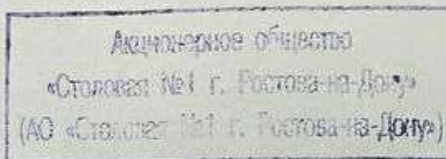 Акционерное общество
«Столовая №1 г. Ростова-на-Дону»
(АО «Столовая №1 г. Ростова-на-Дону»)